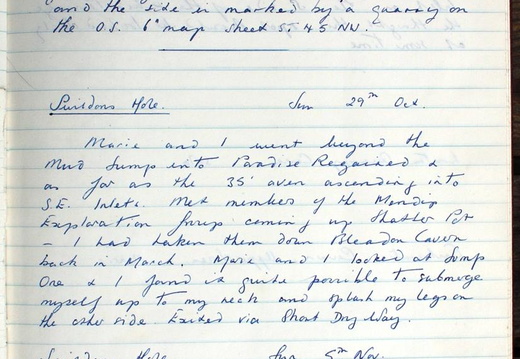 and the side is marked by a quarry on
the O.S. 6" map sheet ST 45 NW.
Swildons Hole. Sun 29th Oct.
Marie and I went beyond the
Mud Sump into Paradise Regained &
as far as the 35' aven ascending into
S.E. Inlets. Met members of the Mendip
Exploration Group coming up Shatter Pot
- I had taken them down Bleadon Cavern
back in March. Marie and I looked at Sump
One & I found it quite possible to submerge
myself up to my neck and splash my legs on
the other side. Exited via Short Dry Way.
Swildons Hole Sun 5th Nov.